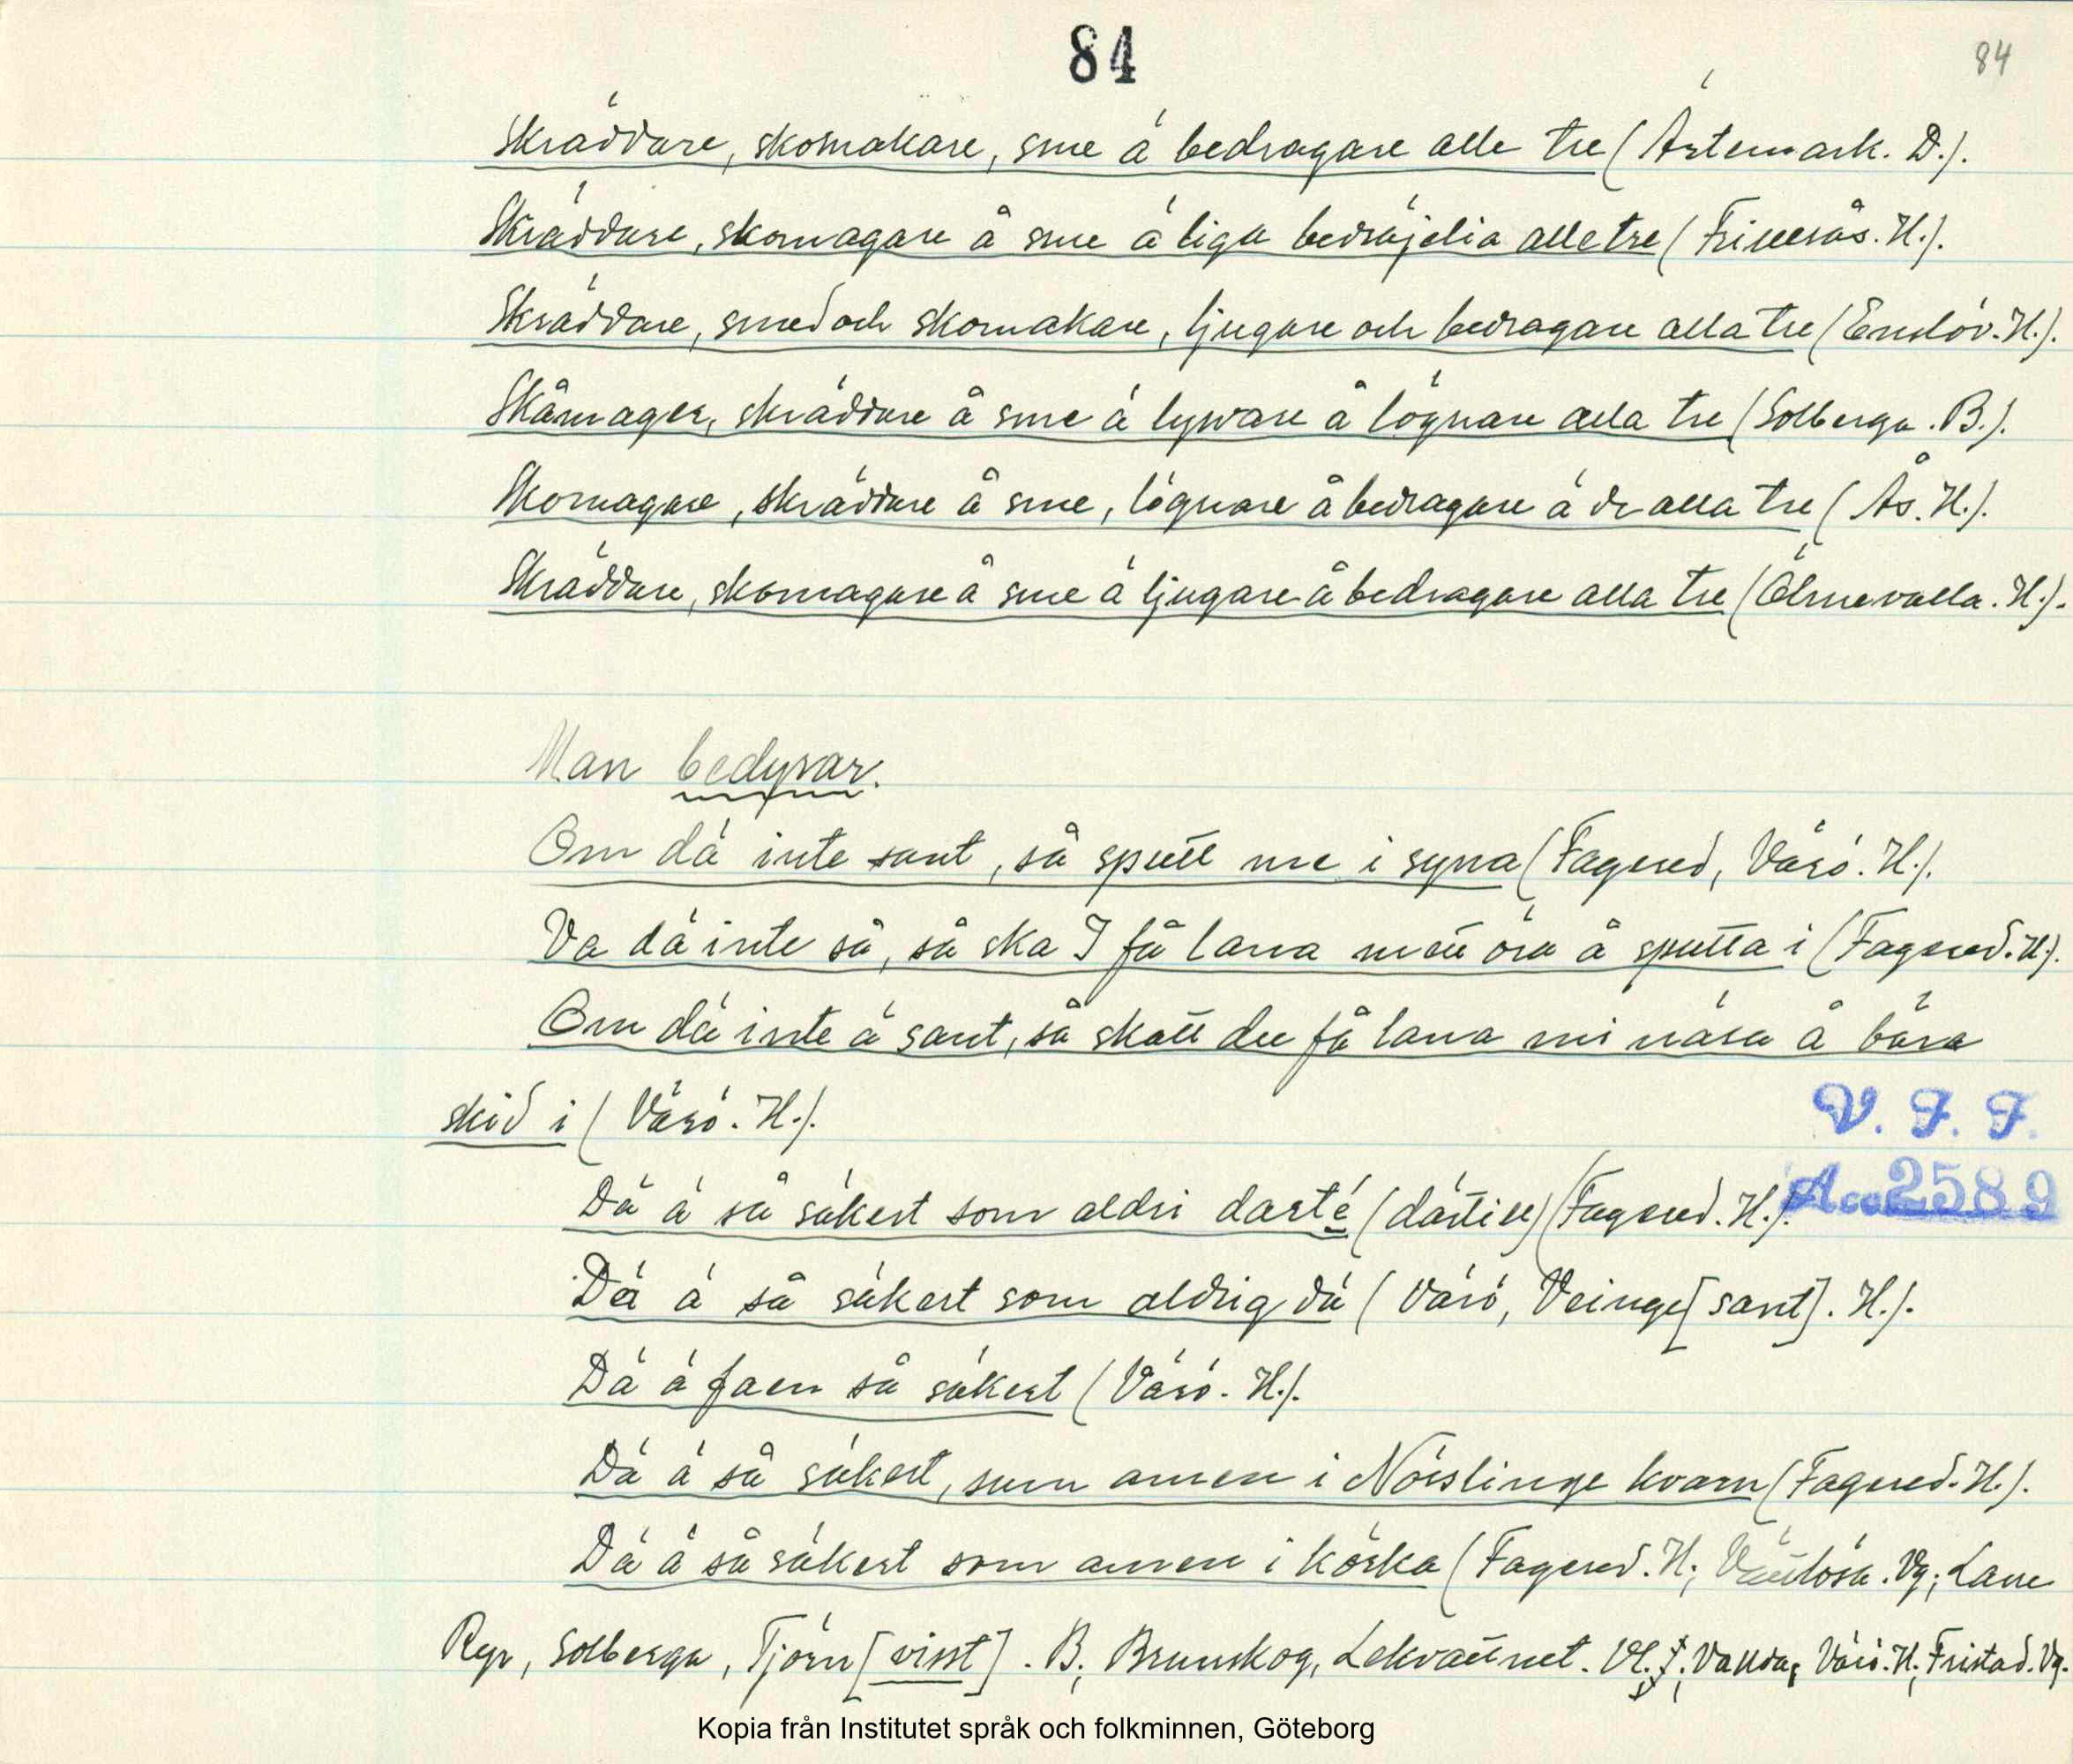 84 84
Skräddare, skomakare, sme ä bedragare alle tre (Ärtemark. D.).
Skräddare, skomagare å sme ä liga bedräjelia alle tre (Frillesås. H.).
Skräddare, smed och skomakare, ljugare och bedragare alla tre (Enslöv. H.).
Skåmager, skräddare å sme ä lyware å lögnare alla tre (Solberga. B.).
Skomagare, skräddare å sme, lögnare å bedragare ä de alla tre (Ås. H.).
Skräddare, skomagare å sme ä ljugare å bedragare alla tre (Ölmevalla. H.).
Man bedyrar.
Om dä inte sant, så sputt me i syna (Fagered, Värö. H.).
Va dä inte så, så ska I få lana mitt öra å sputta i (Fagered. H.).
Om dä inte ä sant, så skall du få lana mi näsa å bära
skid i (Värö. H.).
V. F. F.
Dä ä så säkert som aldri darté (därtill) (Fagered. H.).
Acc 2589
Dä ä så säkert som aldrig dä (Värö, Veinge [sant]. H.).
Dä ä faen så säkert (Värö. H.).
Dä ä så säkert, sum amen i Nörslinge kvarn (Fagered. H.).
Dä ä så säkert som amen i körka (Fagered. H; Vätlösa. Vg; Lane
Ryr, Solberga, Tjörn [visst]. B; Brunskog, Lekvattnet. Vl.; Vallda, Värö. H; Fristad. Vg.
Kopia från Institutet språk och folkminnen, Göteborg